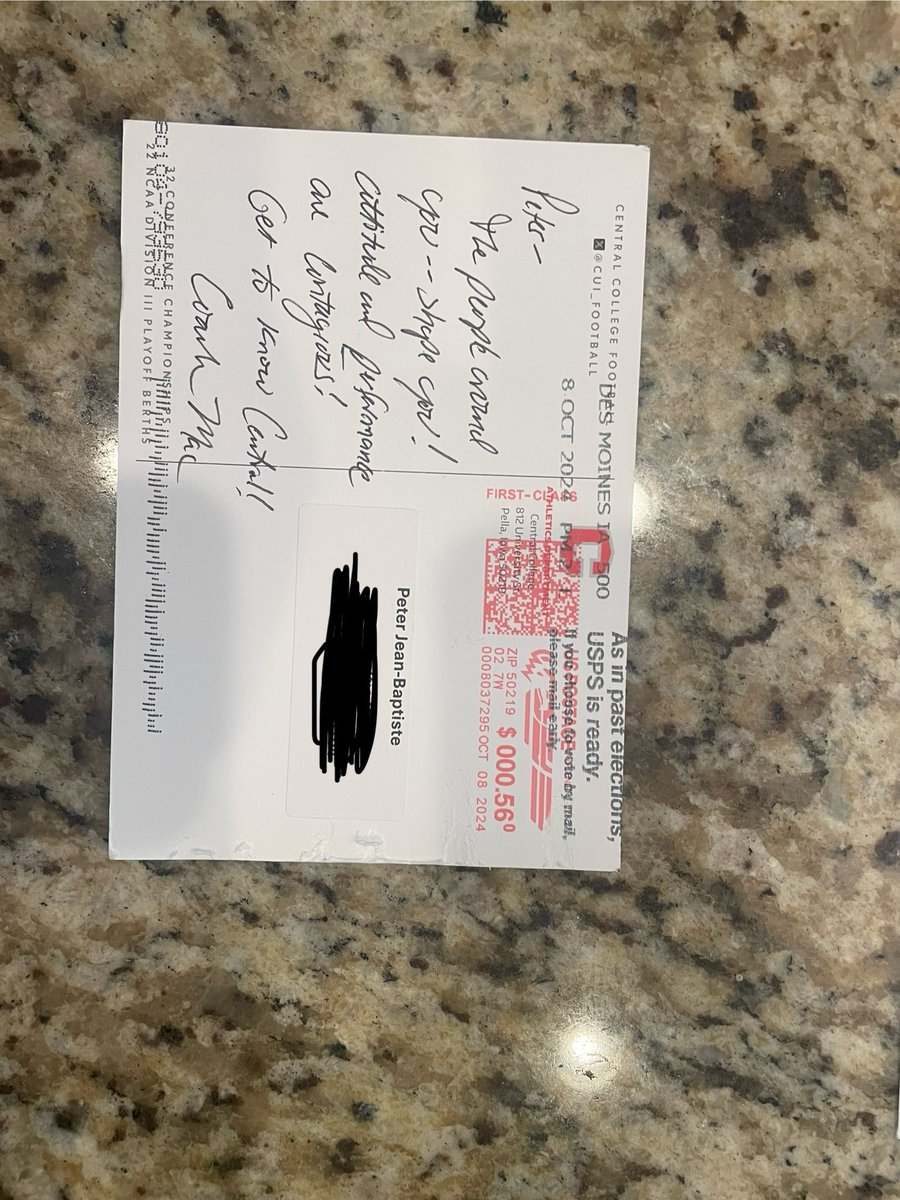 CENTRAL COLLEGE FOOTBALL
X @CUI_FOOTBALL
DES MOINES IA 500
8 OCT 2024 PM 2 L
As in past elections,
USPS is ready.
If you choose to vote by mail,
please mail early.
C
ATHLETICS
Central College
812 University St
Pella, Iowa 50219
FIRST-CLASS
US POSTAGE
ZIP 50219 $ 000.56⁰
02 7W
0008037295 OCT 08 2024
Peter-
The people around
you -- shape you!
Attitude and Performance
are Contagious!
Get to know Central!
Coach Mc
Peter Jean-Baptiste
32 CONFERENCE CHAMPIONSHIPS
22 NCAA DIVISION III PLAYOFF BERTHS